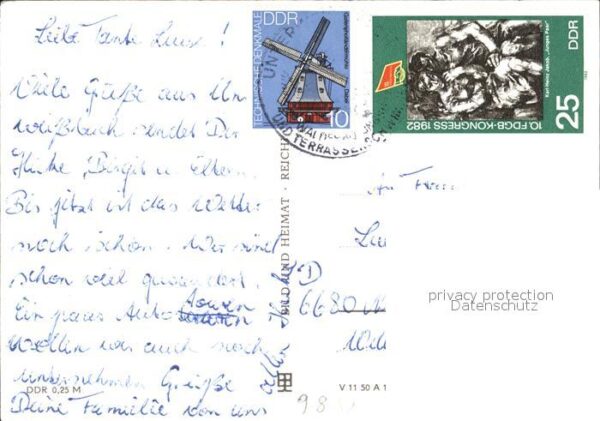 Liebe Tante Luise!
Viele Grüße aus Un
weißbach sendet Dir
Heike, Birgit u. Eltern.
Bis jetzt ist das Wetter
noch schön. Wir sind
schon viel gewandert.
Ein paar Autotouren
wollen wir auch noch
unternehmen Grüße
Deine Familie von uns
DDR 0,25 M
TECHNISCHE DENKMALE
DDR
10
10. FDGB-KONGRESS 1982
Karl-Heinz Jakob, „Junges Paar“
DDR
25
UND TERRASSEN
BILD UND HEIMAT · REICH
An Frau
Lu
6680
privacy protection
Datenschutz
V 11 50 A 1
98